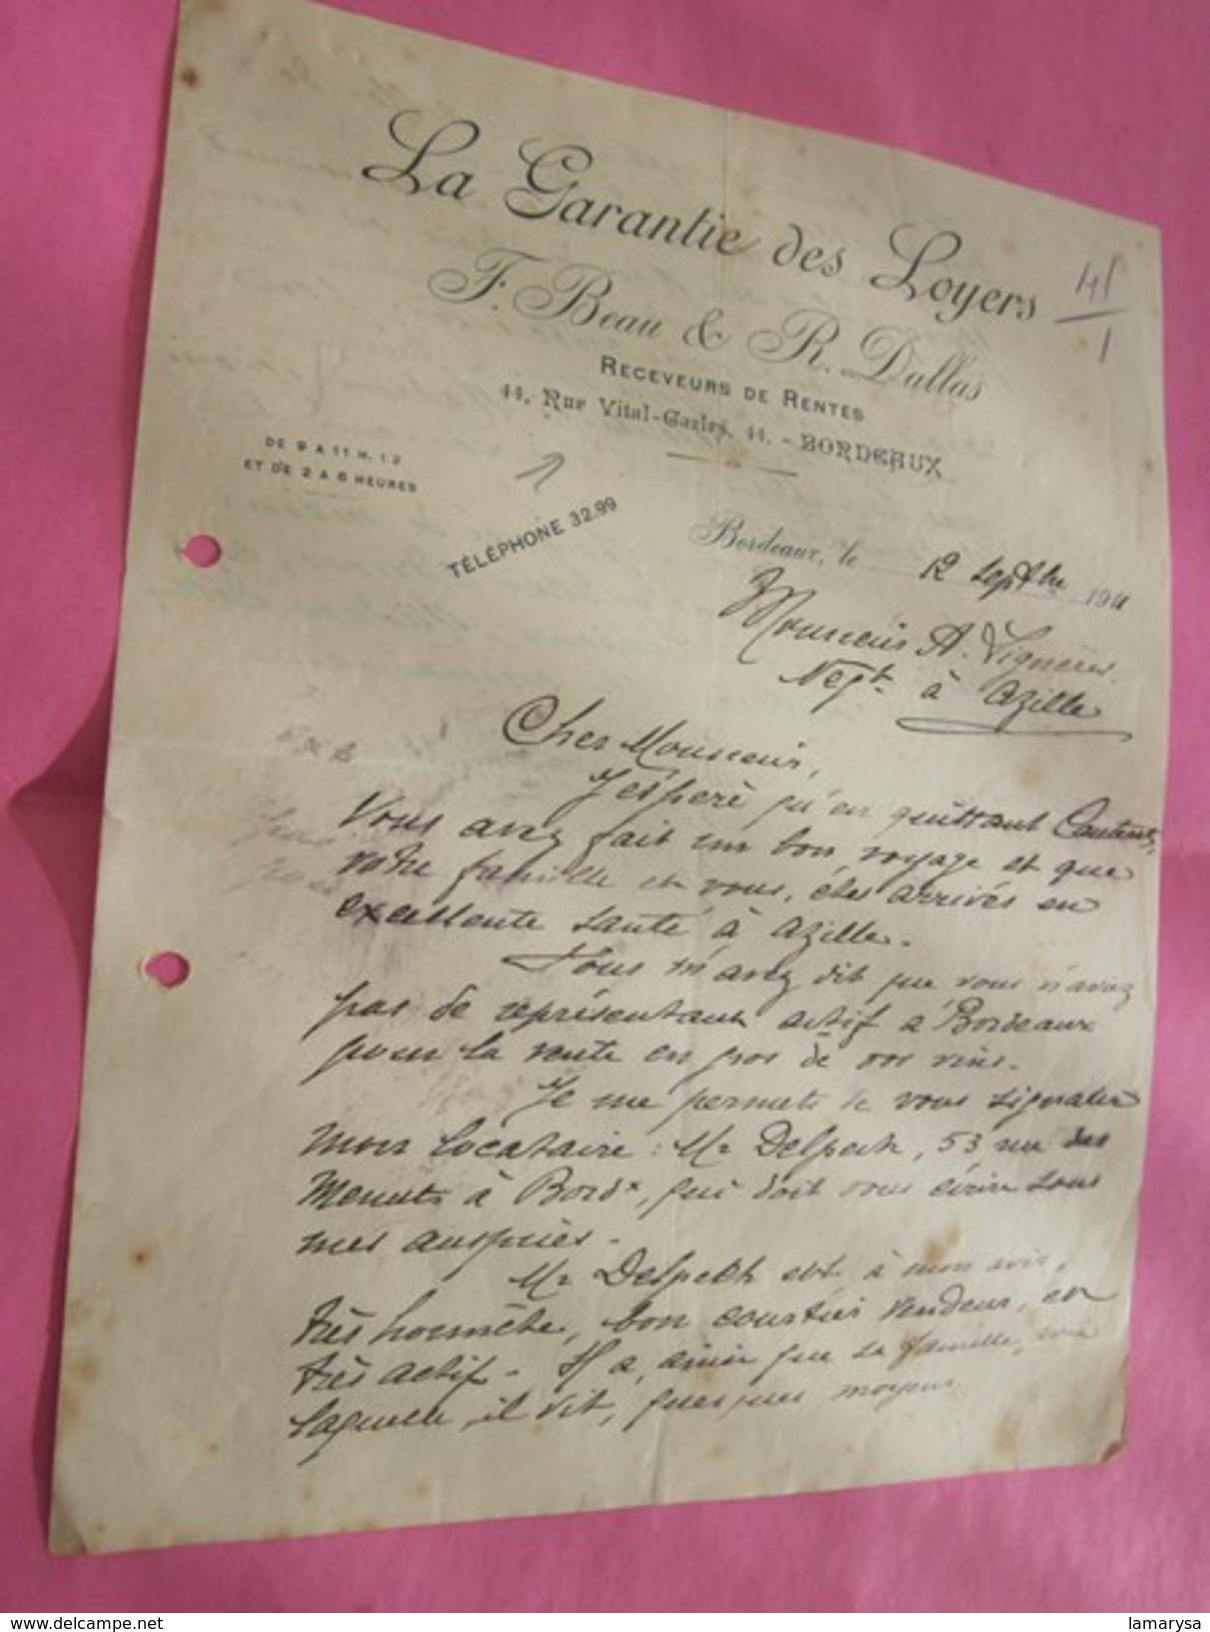 La Garantie des Loyers
F. Beau & R. Dallas
RECEVEURS DE RENTES
44, Rue Vital-Carles, 44. - BORDEAUX
DE 9 A 11 H. 1/2
ET DE 2 A 6 HEURES
TÉLÉPHONE 32.99
Bordeaux, le 12 Septbre 191
Monsieur A. Vigneres
Negt à Azille
Cher Monsieur,
J'espère qu'en quittant Cauterets,
vous avez fait un bon voyage et que
votre famille et vous, êtes arrivés en
excellente santé à Azille.
Vous m'avez dit que vous n'aviez
pas de représentant actif à Bordeaux
pour la vente en gros de vos vins.
Je me permets de vous signaler
mon locataire : Mr Delpech, 53 rue des
Menuts à Bordx, qui doit vous écrire sous
mes auspices.
Mr Delpech est à mon avis,
très honnête, bon courtier vendeur, et
très actif - Il a, ainsi que sa famille, avec
laquelle il vit, quelques moyens
delcampe.net
lamarysa